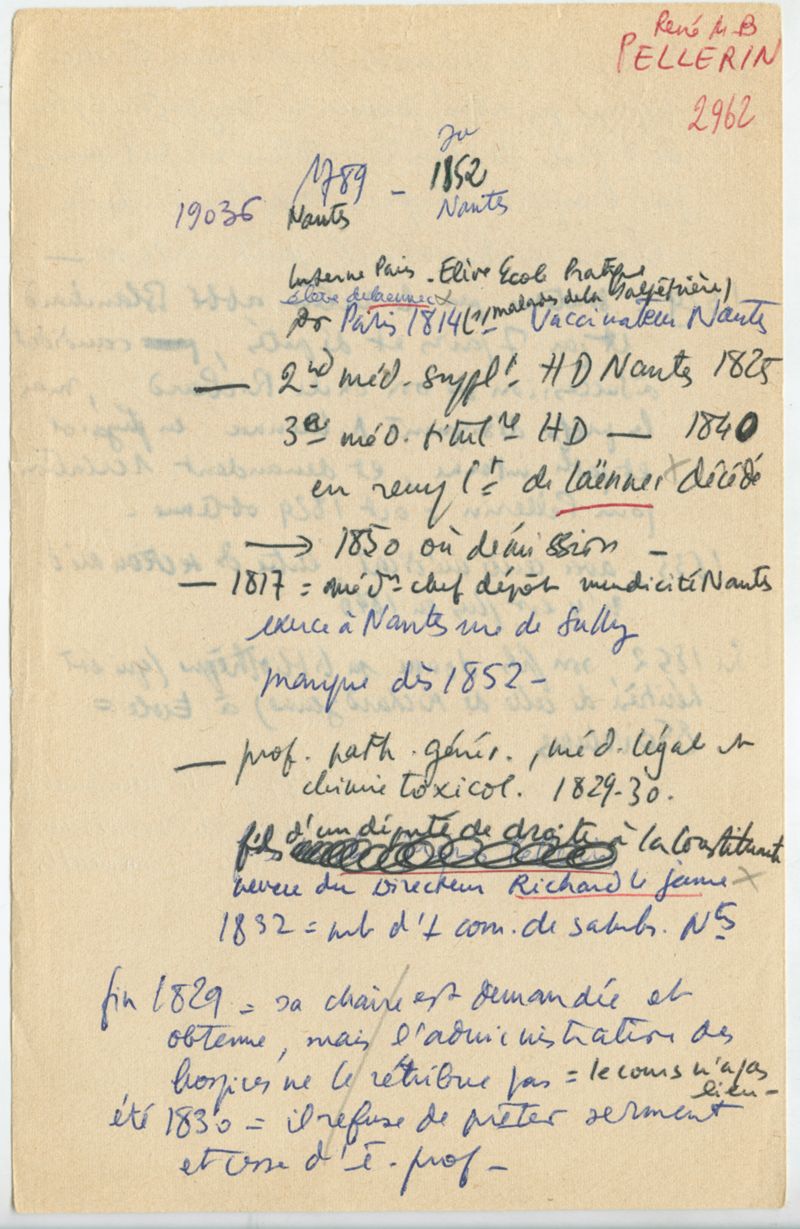 René M. B
PELLERIN
2962
1789 - 1852
19036 Nantes Nantes
Interne Paris - Elève Ecole Pratique
élève de Laennec x
Dr Paris 1814 (malades de la Salpêtrière) Vaccinateur Nantes
— 2nd méd. supplt. HD Nantes 1825
3e méd. titulre HD — 1840
en remplt de Laënnec x décédé
→ 1850 où démission —
— 1817 = médn chef dépôt mendicité Nantes
exerce à Nantes rue de Sully
manque dès 1852 —
— prof. path. génér., méd. légal et
chimie toxicol. 1829-30.
fils d'un député de droite à la Constituante
neveu du Directeur Richard le jeune x
1832 = mb d'1 com. de salubr. Nts
fin 1829 = sa chaire est demandée et
obtenue, mais l'administration des
hospices ne le rétribue pas = le cours n'a pas
lieu -
été 1830 = il refuse de prêter serment
et cesse d'ê. prof —